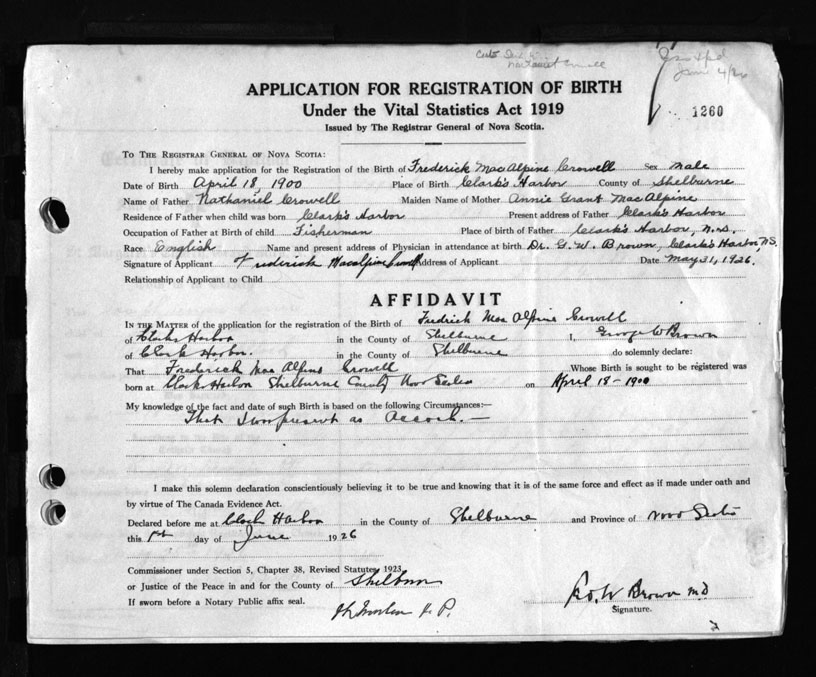 APPLICATION FOR REGISTRATION OF BIRTH
Under the Vital Statistics Act 1919
Issued by The Registrar General of Nova Scotia.
1260
TO THE REGISTRAR GENERAL OF NOVA SCOTIA:
I hereby make application for the Registration of the Birth of Frederick MacAlpine Crowell Sex Male
Date of Birth April 18, 1900 Place of Birth Clark's Harbor County of Shelburne
Name of Father Nathaniel Crowell Maiden Name of Mother Annie Grant MacAlpine
Residence of Father when child was born Clark's Harbor Present address of Father Clark's Harbor
Occupation of Father at Birth of child Fisherman Place of birth of Father Clark's Harbor, N.S.
Race English Name and present address of Physician in attendance at birth Dr. G. W. Brown, Clark's Harbor N.S.
Signature of Applicant Frederick Macalpine Crowell Address of Applicant Date May 31, 1926.
Relationship of Applicant to Child
AFFIDAVIT
IN THE MATTER of the application for the registration of the Birth of Fredrick Mac Alpine Crowell
of Clarks Harbor in the County of Shelburne I, George W Brown
of Clark Harbor. in the County of Shelburne do solemnly declare:
That Frederick Mac Alpine Crowell Whose Birth is sought to be registered was
born at Clarks Harbor Shelburne County Nova Scotia on April 18-1900
My knowledge of the fact and date of such Birth is based on the following Circumstances:—
That I was present as
I make this solemn declaration conscientiously believing it to be true and knowing that it is of the same force and effect as if made under oath and
by virtue of The Canada Evidence Act.
Declared before me at Clark Harbor in the County of Shelburne and Province of Nova Scotia
this 1st day of June 1926
Commissioner under Section 5, Chapter 38, Revised Statutes, 1923
or Justice of the Peace in and for the County of Shelburne
If sworn before a Notary Public affix seal.
J. P.
Geo. W Brown M.D
Signature.
2